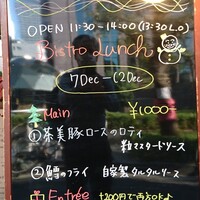 OPEN 11:30-14:00 (13:30 L.O)
Bistro Lunch
7Dec-12Dec
Main ¥1,000-
①茶美豚ロースのロティ
粒マスタードソース
②鱈のフライ 自家製タルタルソース
Entrée +200円で両方だよ